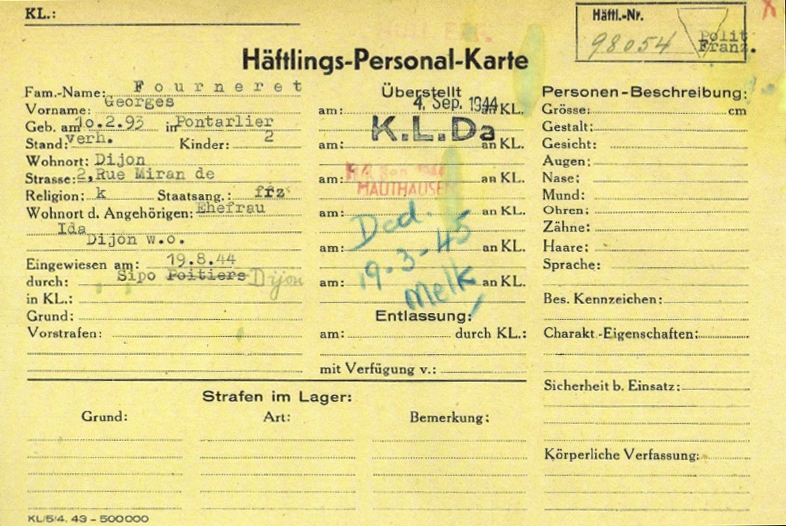 KL.:
Häftl.-Nr.
98054
Polit
Franz.
Häftlings-Personal-Karte
Fam.-Name: Fourneret
Vorname: Georges
Geb. am 10.2.93 in Pontarlier
Stand: verh. Kinder: 2
Wohnort: Dijon
Strasse: 2,Rue Miran de
Religion: k Staatsang.: frz
Wohnort d. Angehörigen: Ehefrau
Ida
Dijon w.o.
Eingewiesen am: 19.8.44
durch: Sipo Poitiers Dijon
in KL.:
Grund:
Vorstrafen:
Überstellt
am: 4. Sep. 1944 an KL.
K.L.Da
am: an KL.
am: an KL.
14. Sep. 1944
MAUTHAUSEN
am: an KL.
Ded.
am: an KL.
19-3-45
am: an KL.
Melk
Entlassung:
am: durch KL.:
mit Verfügung v.:
Personen-Beschreibung:
Grösse: cm
Gestalt:
Gesicht:
Augen:
Nase:
Mund:
Ohren:
Zähne:
Haare:
Sprache:
Bes. Kennzeichen:
Charakt.-Eigenschaften:
Sicherheit b. Einsatz:
Körperliche Verfassung:
Strafen im Lager:
Grund: Art: Bemerkung:
KL/5/4. 43 - 500000